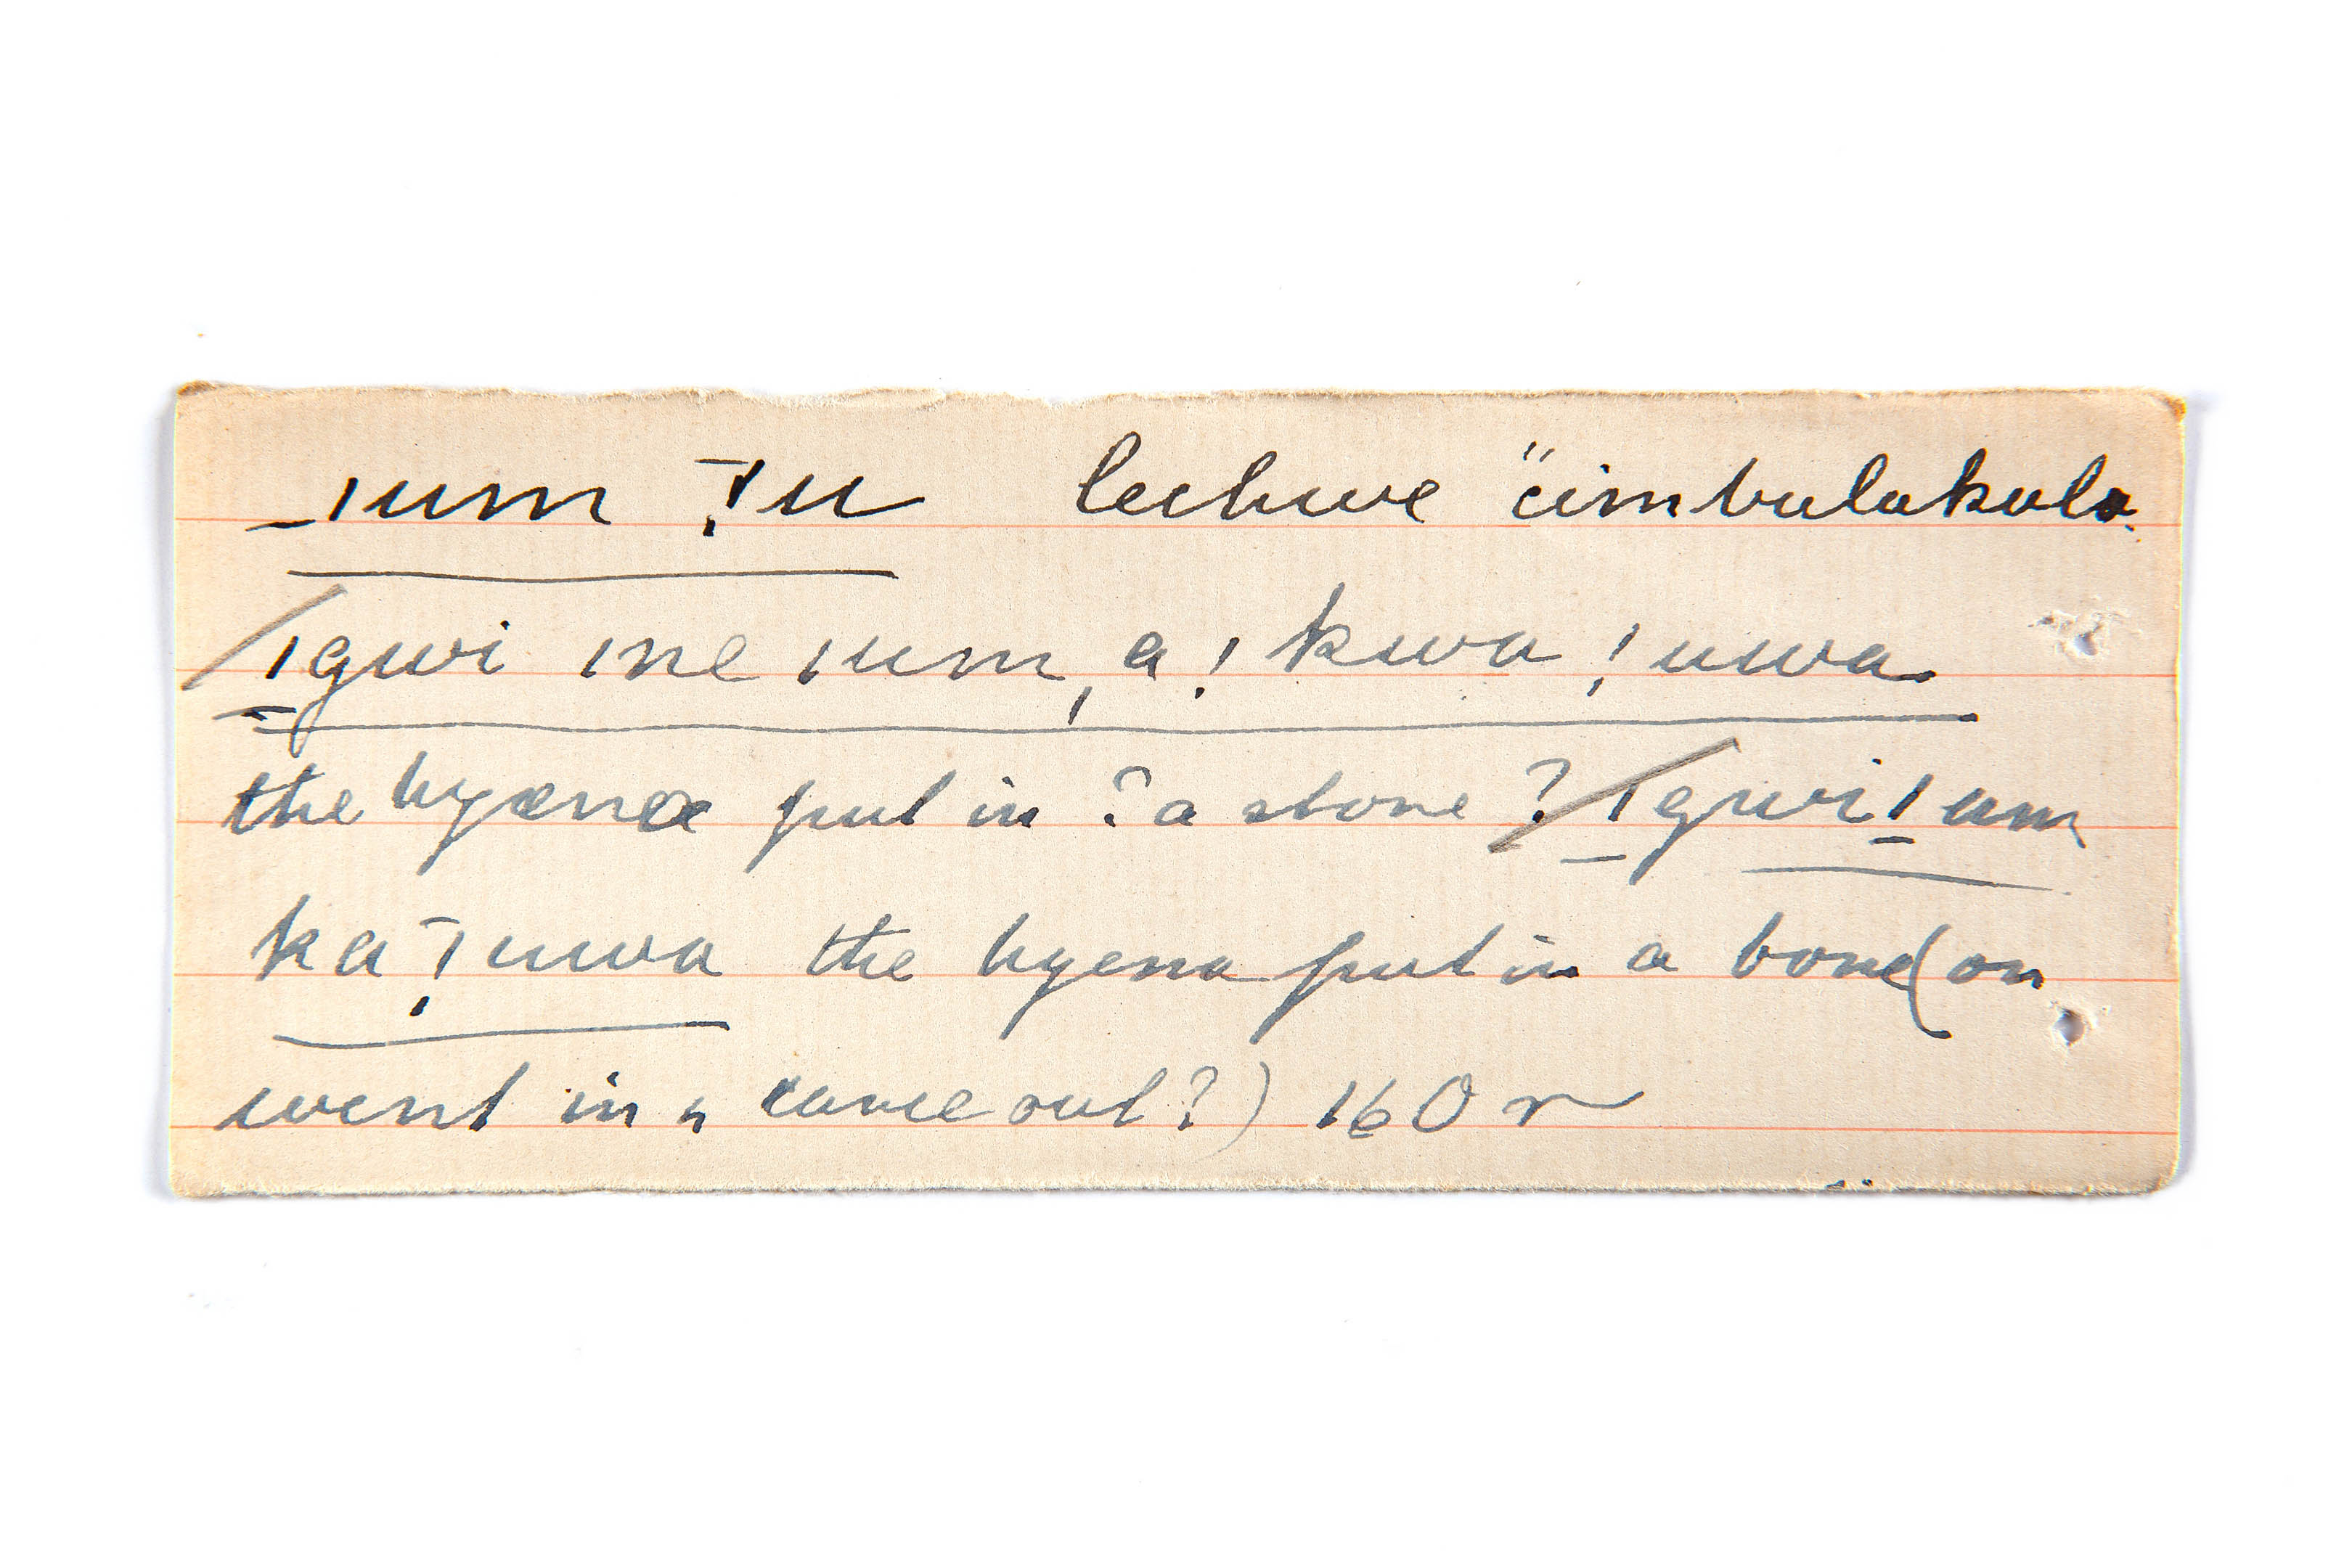 _ıum !̄u lechwe "cimbulukulo.
/ıgwi ıne ıum, a ! kwa ! uwa
the hyæna put in ? a stone ? / ıgwi ı um
ka !̄ uwa the hyena put in a bone (or
went in & came out?) 160 r